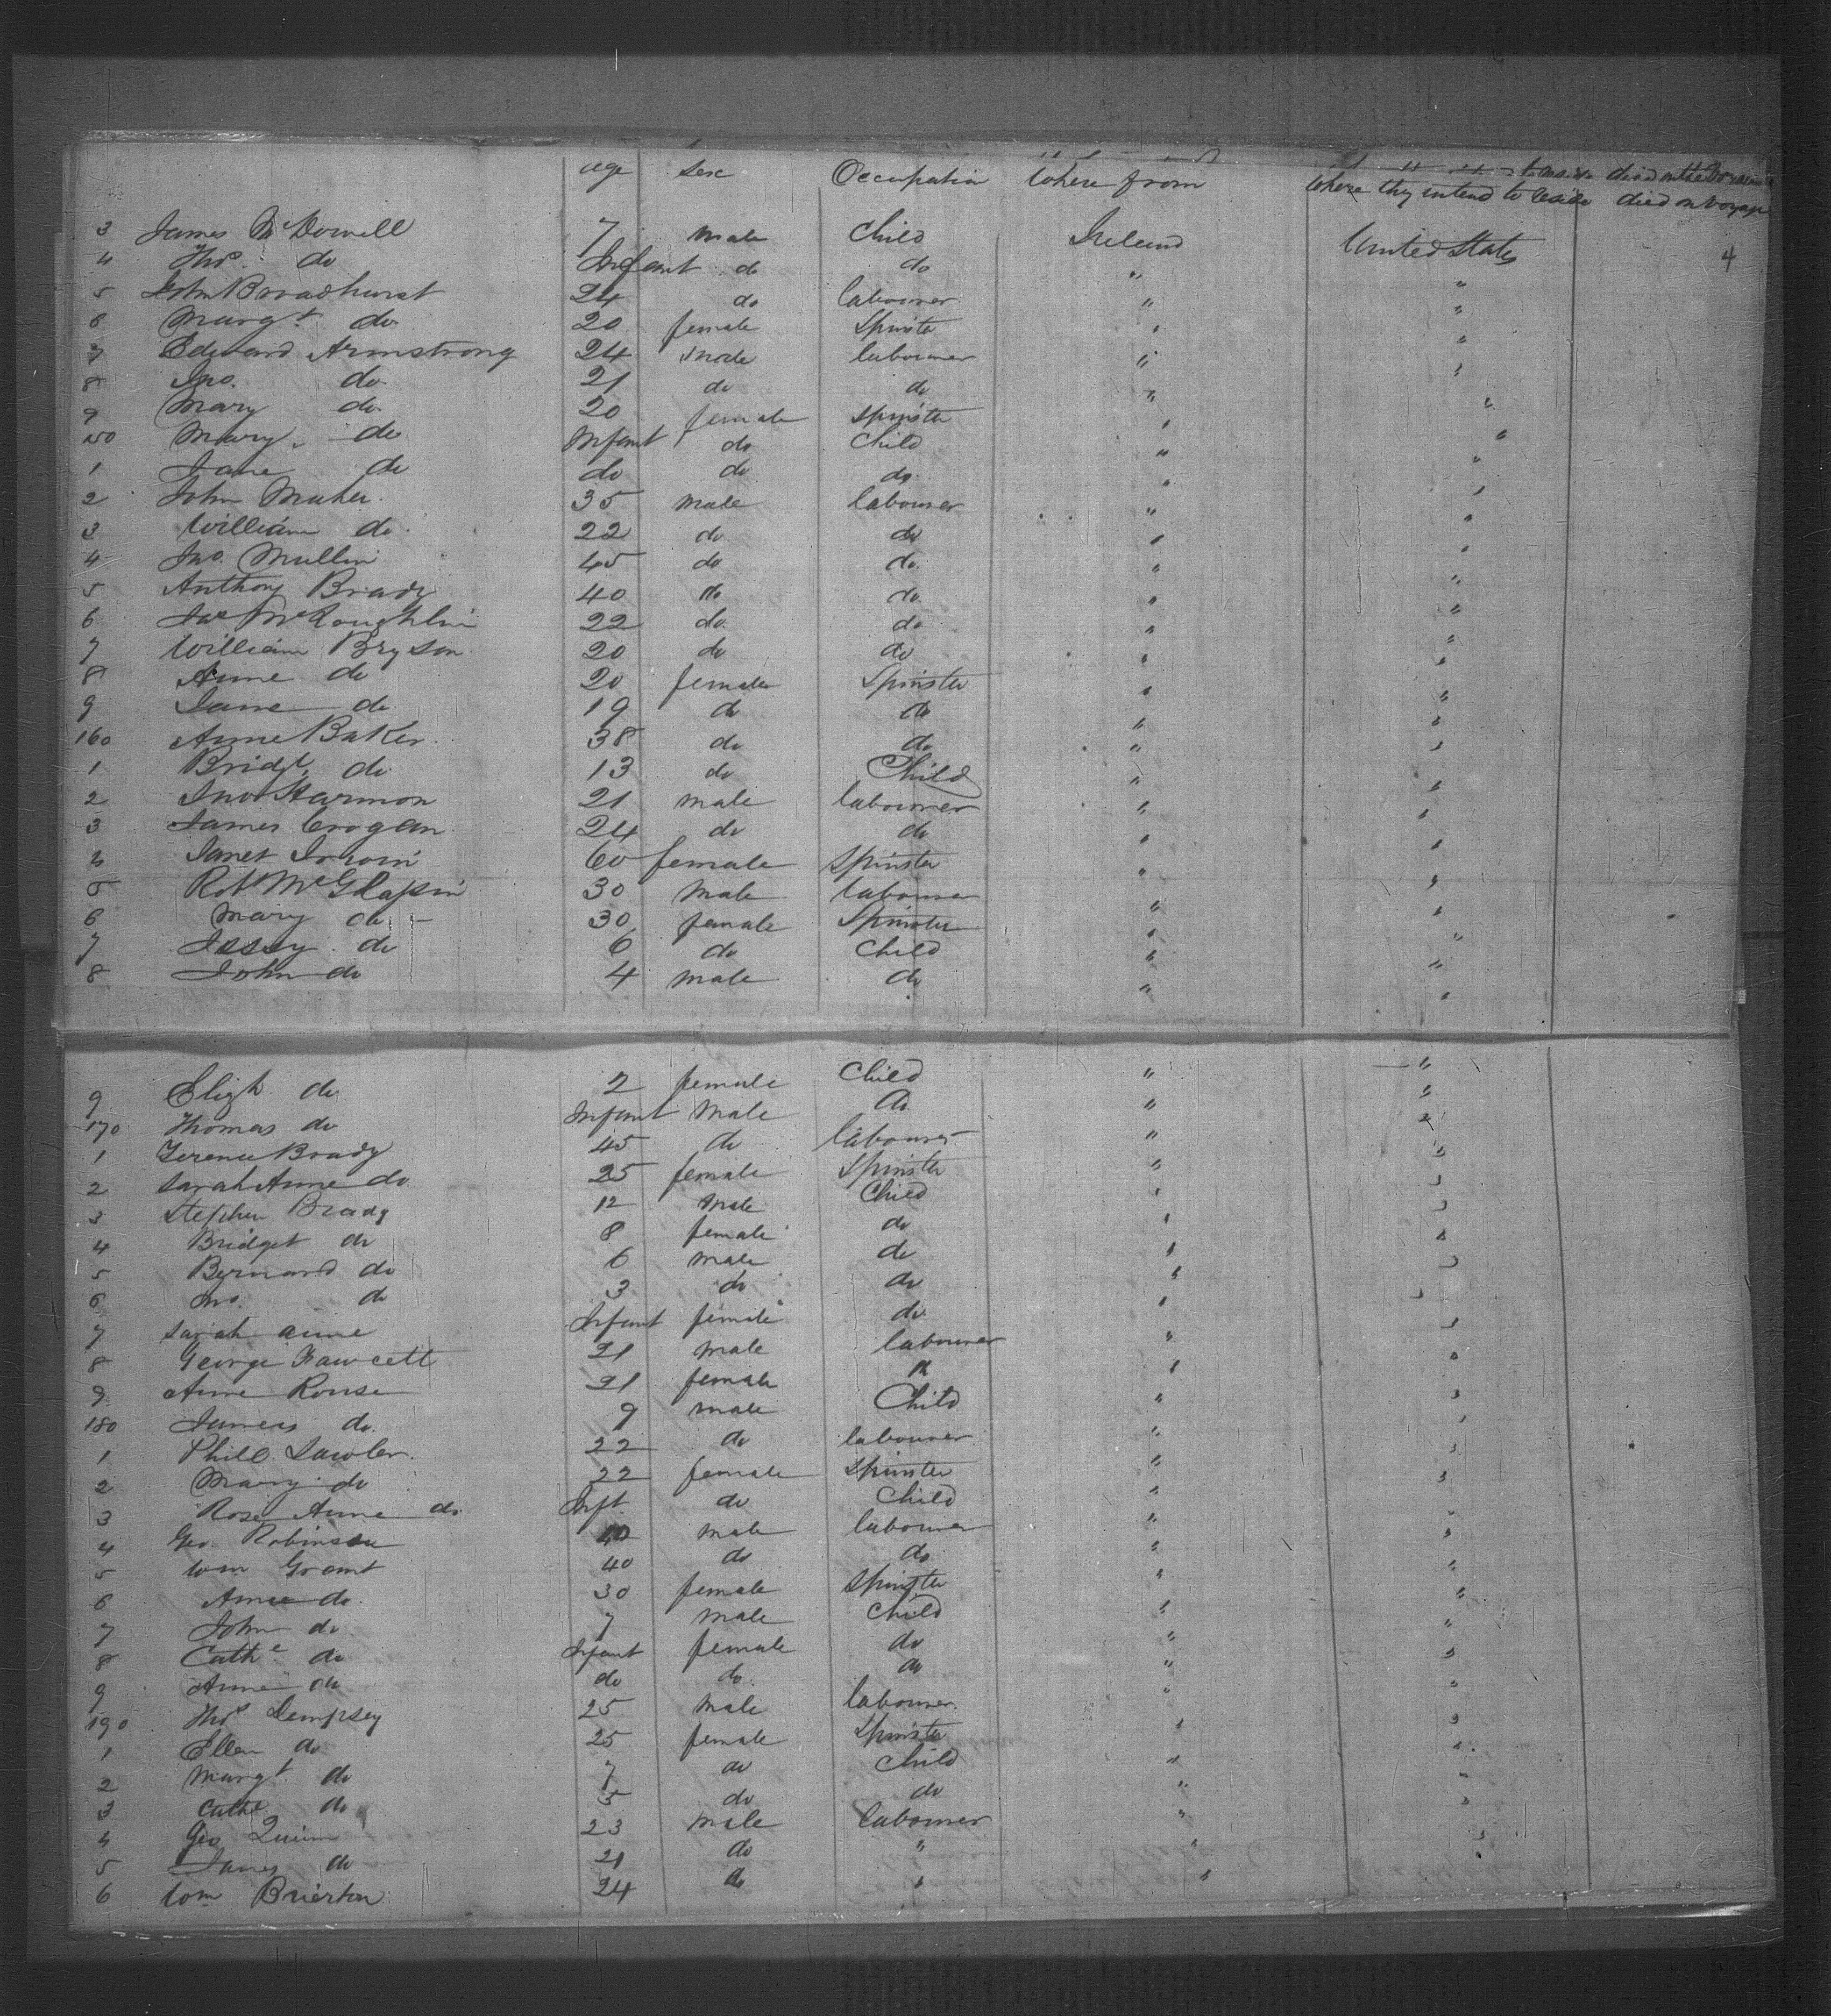 age sex Occupation Where from Where they intend to reside died on Voyage
4
3 James McDowell 7 male Child Ireland United States
4 Thos. do Infant do do " "
5 John Broadhurst 24 do labourer " "
6 Margt do 20 female Spinster " "
7 Edward Armstrong 24 male labourer " "
8 Jno. do 21 do do " "
9 Mary do 20 female Spinster " "
150 Mary do Infant do Child " "
1 Jane do do do do " "
2 John Maher 35 male labourer " "
3 William do 22 do do " "
4 Jno. Mullin 45 do do " "
5 Anthony Brady 40 do do " "
6 Jas McLoughlin 22 do do " "
7 William Bryson 20 do do " "
8 Anne do 20 female Spinster " "
9 Jane do 19 do do " "
160 Anne Baker 38 do do " "
1 Bridgt do 13 do Child " "
2 Jno Harmon 21 male labourer " "
3 James Crogan 24 do do " "
4 Janet Irwin 60 female Spinster " "
5 Robt 30 male labourer " "
6 Mary do 30 female Spinster " "
7 Jessy do 6 do Child " "
8 John do 4 male do " "
9 do 2 female Child " "
170 Thomas do Infant male do " "
1 Terence Brady 45 do labourer " "
2 Sarah Anne do 25 female Spinster " "
3 Stephen Brady 12 male Child " "
4 Bridget do 8 female do " "
5 Bernard do 6 male do " "
6 Jno. do 3 do do " "
7 Sarah Anne Infant female do " "
8 George Fawcett 21 male labourer " "
9 Anne Rouse 21 female " "
180 James do 9 male Child " "
1 Phill. Lawler 22 do labourer " "
2 Mary do 22 female Spinster " "
3 Rose Anne do Inft. do Child " "
4 Geo. Robinson 40 male labourer " "
5 Wm Grant 40 do do " "
6 Anne do 30 female Spinster " "
7 John do 7 male Child " "
8 Cathe do Infant female do " "
9 Anne do do do do " "
190 Thos Dempsey 25 male labourer " "
1 Ellen do 25 female Spinster " "
2 Margt do 7 do Child " "
3 Cathe do 5 do do " "
4 Geo Quinn 23 male labourer " "
5 James do 21 do " " "
6 Wm Brierton 24 do " "